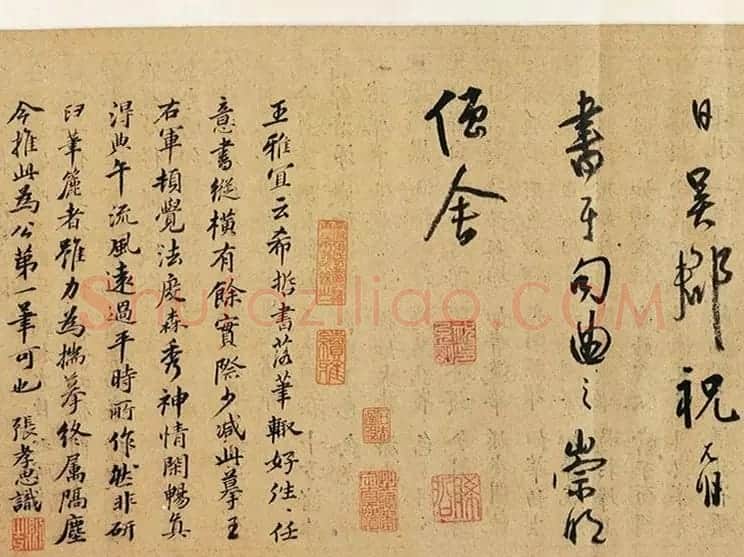 日吴郡祝允明
書于句曲之崇明
僧舍
王雅宜云希哲書落筆輙好往往任
意書縱横有餘實際少减此摹王
右軍頓覺法度森秀神情閑暢真
得典午流風遠過平時所作然非研
臼筆簏者雖力為揣摹終属隔塵
今推此為公第一筆可也 張孝思識
Shufaziliao.COM